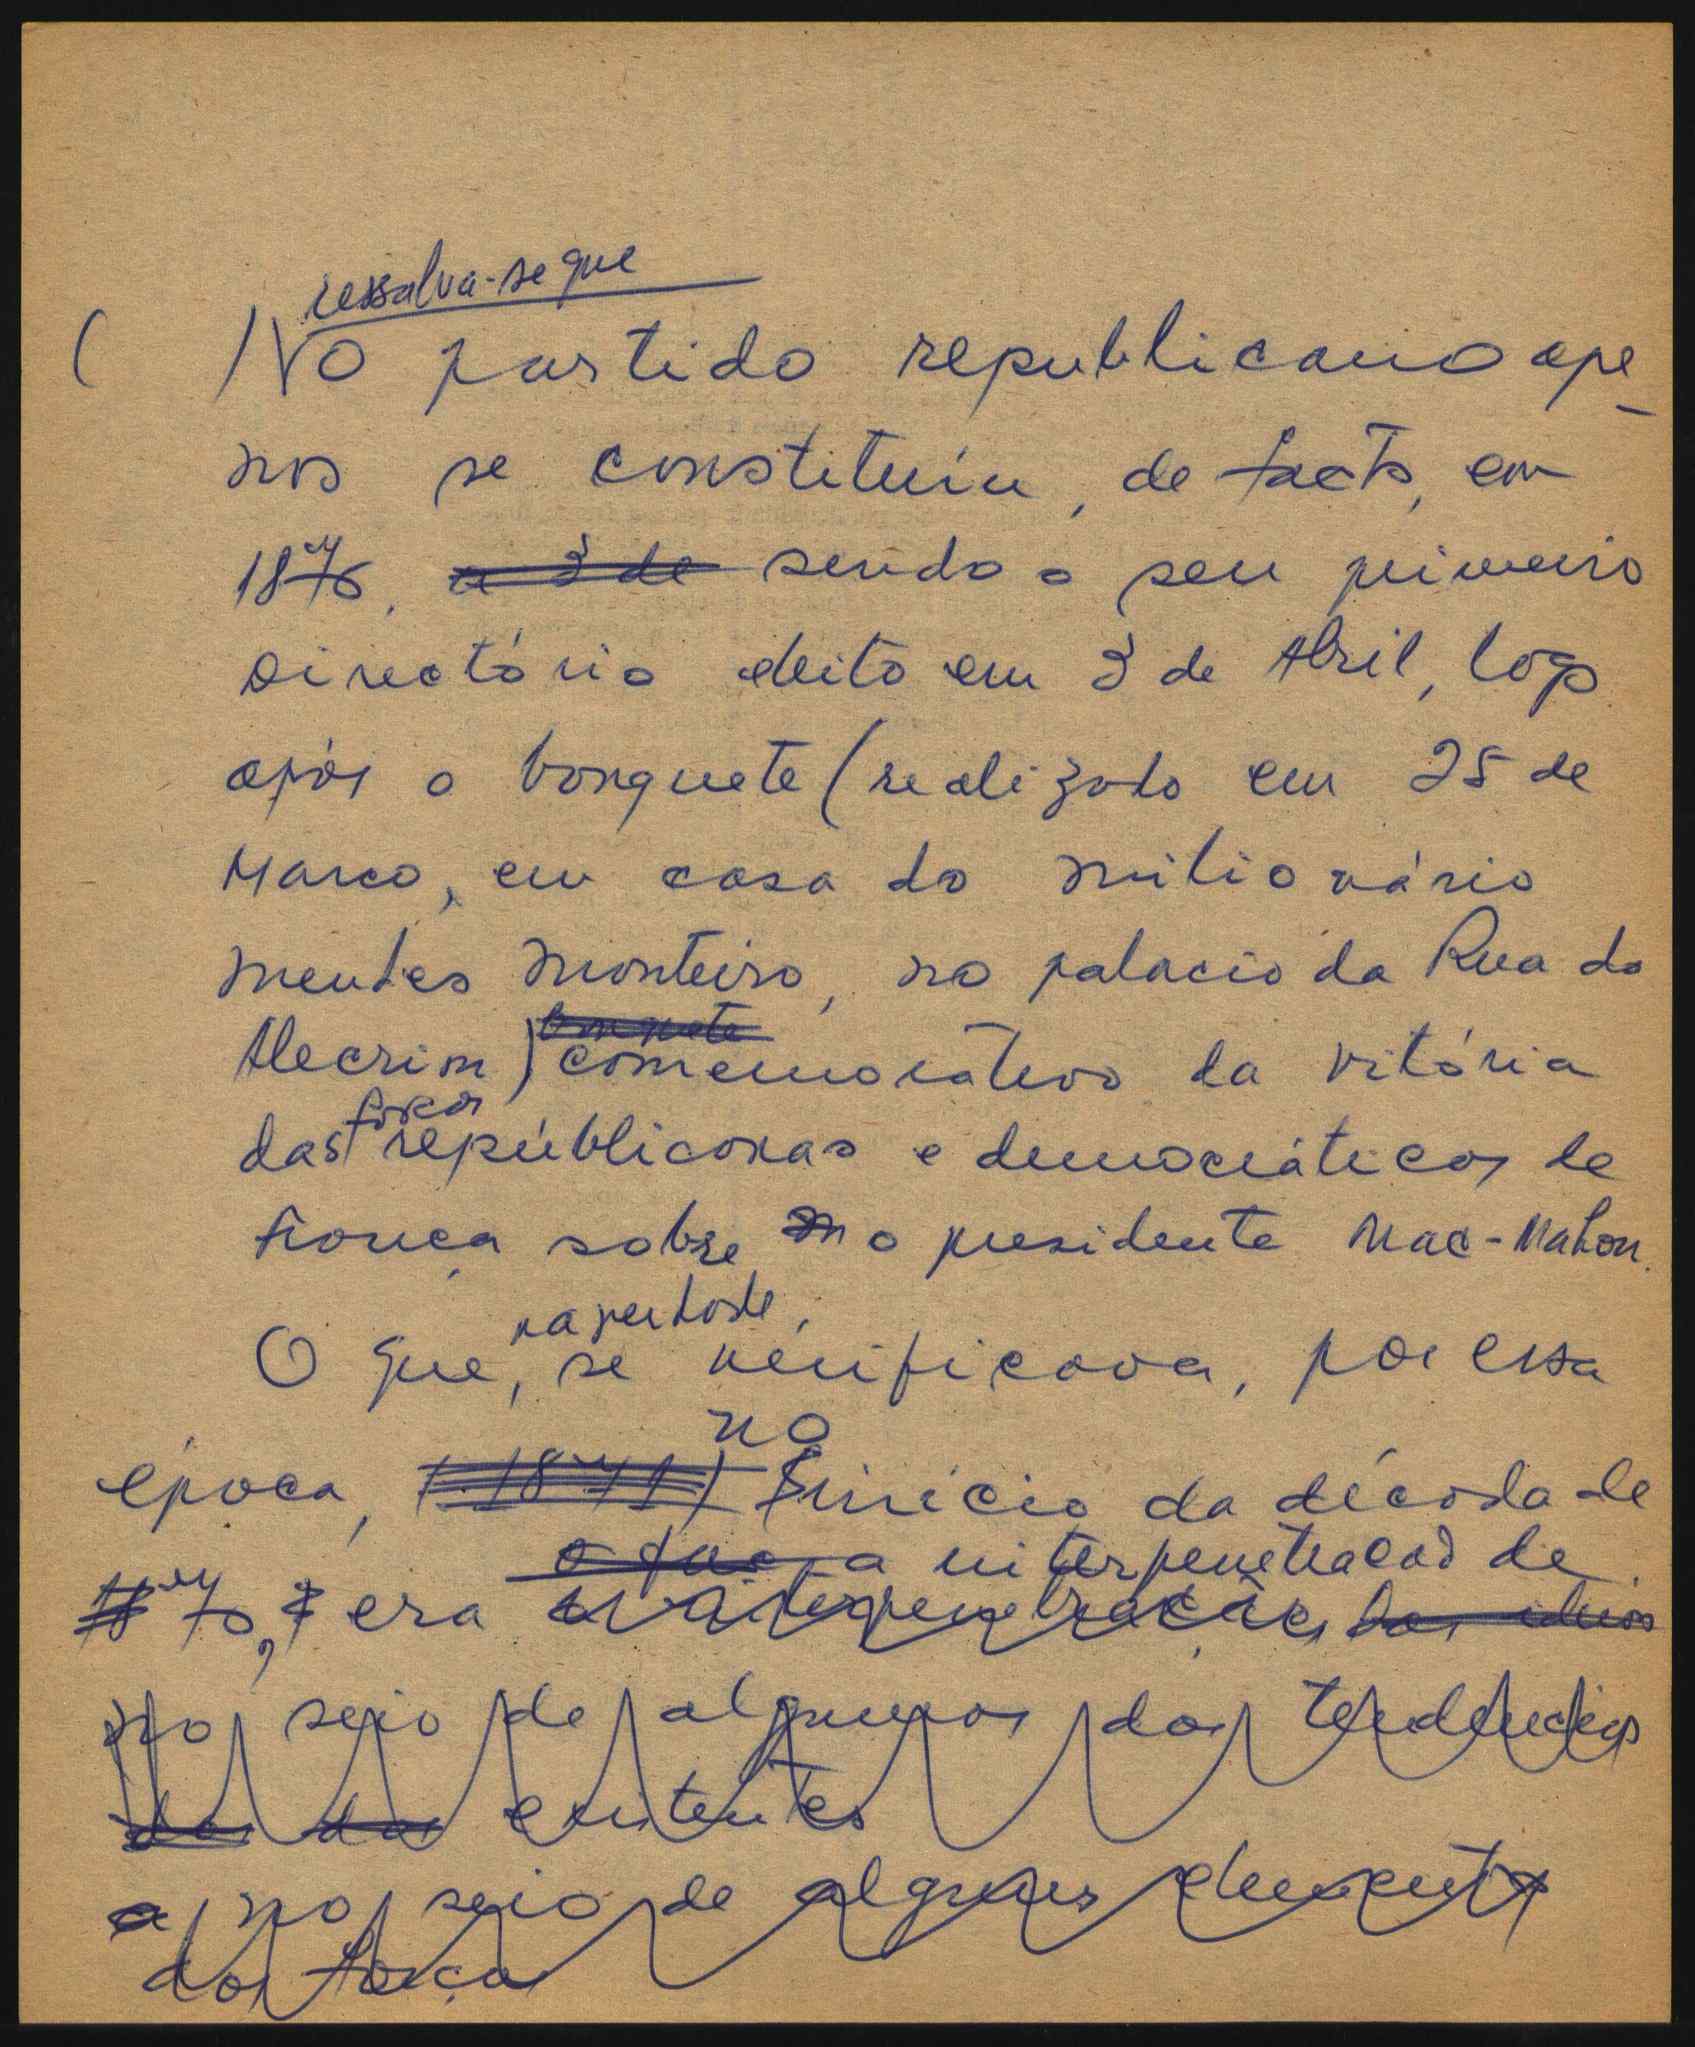 ressalva-se que
( ) O partido republicano ape-
nas se constituiu, de facto, em
1876, a 3 de sendo o seu primeiro
Directório eleito em 3 de Abril, logo
após o banquete (realizado em 25 de
Março, em casa do milionário
Mendes Monteiro, no palacio da Rua do
banquete
Alecrim) comemorativo da vitória
forças
das repúblicanas e democráticas de
França sobre o presidente Mac-Mahon.
na verdade,
O que, se verificava, por essa
no
época, (1871) início da década de
o que a interpenetração de
70, era a interpenetração, das ideias
no seio de algumas das tendências
das das existentes
a no seio de alguns elementos
das forças